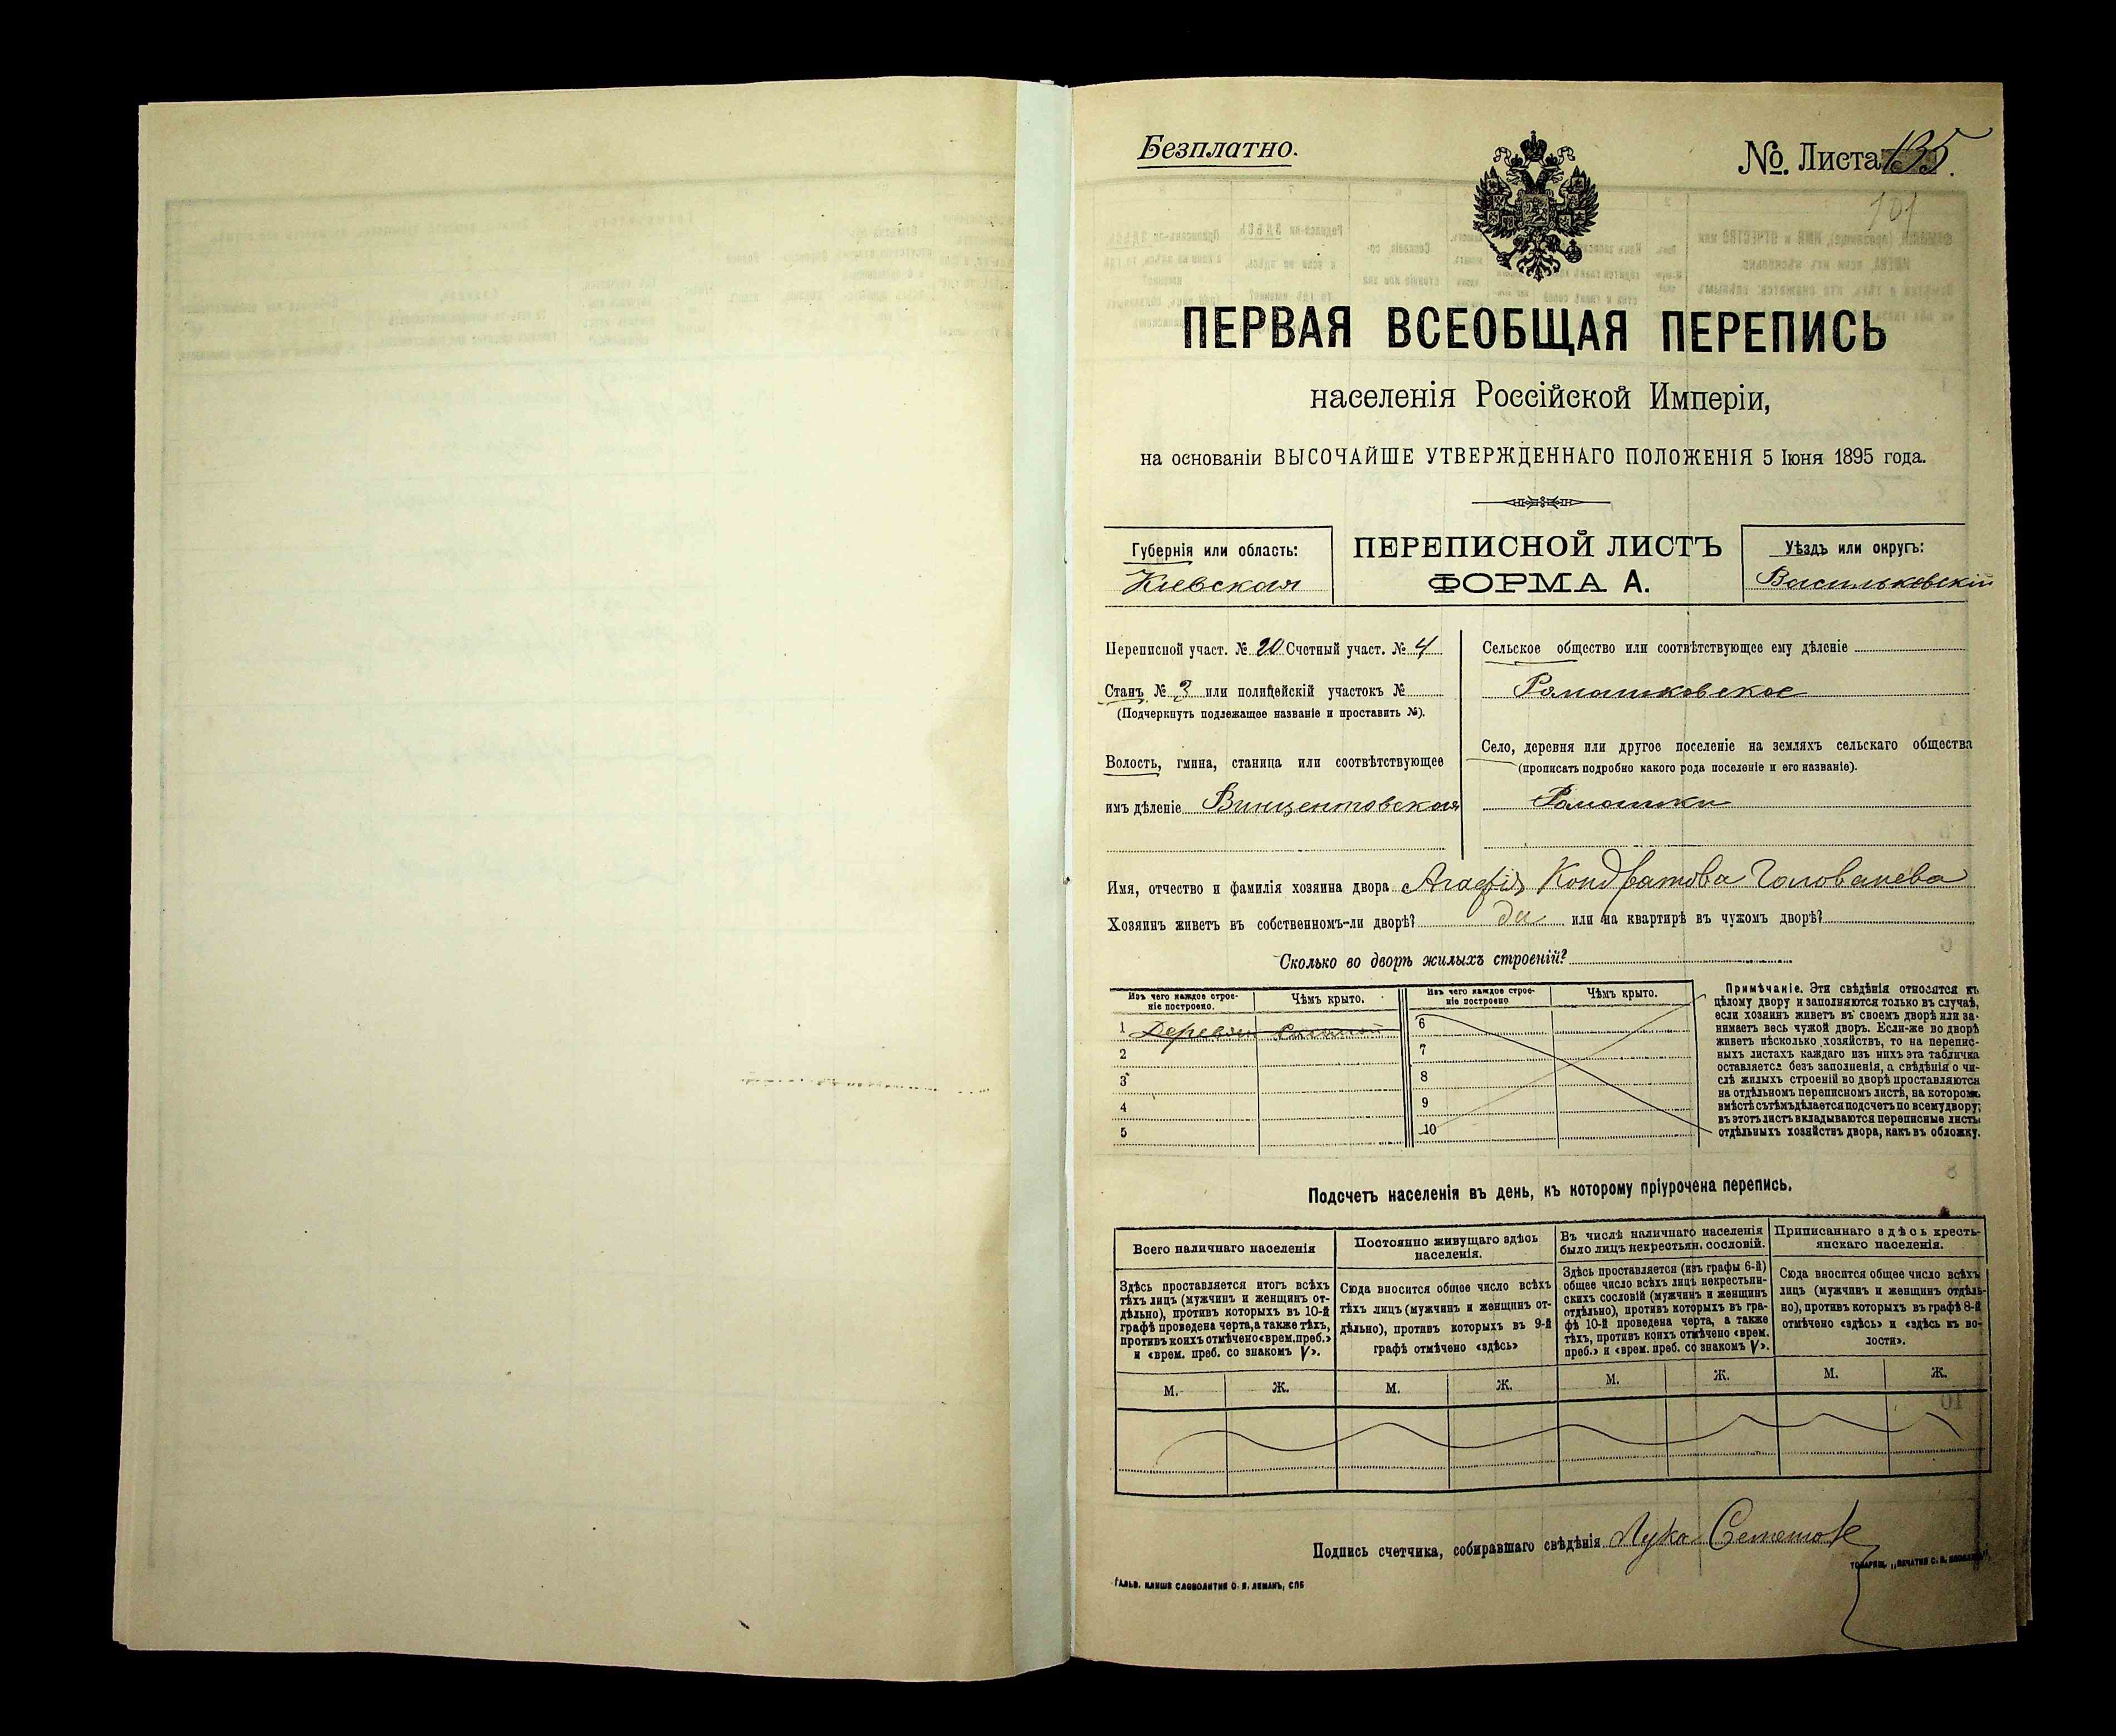 Безплатно.
№ Листа 135.
101
ПЕРВАЯ ВСЕОБЩАЯ ПЕРЕПИСЬ
населенія Россійской Имперіи,
на основаніи ВЫСОЧАЙШЕ УТВЕРЖДЕННАГО ПОЛОЖЕНІЯ 5 Іюня 1895 года.
Губернія или область:
Кіевская
ПЕРЕПИСНОЙ ЛИСТЪ
ФОРМА А.
Уѣздъ или округъ:
Васильковскій
Переписной участ. № 20 Счетный участ. № 4
Станъ № 3 или полицейскій участокъ №
(Подчеркнуть подлежащее названіе и проставить №).
Волость, гмина, станица или соотвѣтствующее
имъ дѣленіе Винцентовская
Сельское общество или соотвѣтствующее ему дѣленіе
Ромашковское
Село, деревня или другое поселеніе на земляхъ сельскаго общества
(прописать подробно какого рода поселеніе и его названіе).
Ромашки
Имя, отчество и фамилія хозяина двора Агафія Кондратова Голованева
Хозяинъ живетъ въ собственномъ-ли дворѣ? да или на квартирѣ въ чужомъ дворѣ?
Сколько во дворѣ жилыхъ строеній?
Изъ чего каждое строе-
ніе построено.
Чѣмъ крыто.
1 Деревян
2
3
4
5
Изъ чего каждое строе-
ніе построено
Чѣмъ крыто.
6
7
8
9
10
Примѣчаніе. Эти свѣдѣнія относятся къ
цѣлому двору и заполняются только въ случаѣ,
если хозяинъ живетъ въ своемъ дворѣ или за-
нимаетъ весь чужой дворъ. Если-же во дворѣ
живетъ нѣсколько хозяйствъ, то на перепис-
ныхъ листахъ каждаго изъ нихъ эта табличка
оставляется безъ заполненія, а свѣдѣнія о чи-
слѣ жилыхъ строеній во дворѣ проставляются
на отдѣльномъ переписномъ листѣ, на которомъ
вмѣстѣ съ тѣмъ дѣлается подсчетъ по всему двору;
въ этотъ листъ вкладываются переписные листы
отдѣльныхъ хозяйствъ двора, какъ въ обложку.
Подсчетъ населенія въ день, къ которому пріурочена перепись.
Всего наличнаго населенія
Здѣсь проставляется итогъ всѣхъ
тѣхъ лицъ (мужчинъ и женщинъ от-
дѣльно), противъ которыхъ въ 10-й
графѣ проведена черта, а также тѣхъ,
противъ коихъ отмѣчено «врем. преб.»
и «врем. преб. со знакомъ V».
М. Ж.
Постоянно живущаго здѣсь
населенія.
Сюда вносится общее число всѣхъ
тѣхъ лицъ (мужчинъ и женщинъ от-
дѣльно), противъ которыхъ въ 9-й
графѣ отмѣчено «здѣсь»
М. Ж.
Въ числѣ наличнаго населенія
было лицъ некрестьян. сословій.
Здѣсь проставляется (изъ графы 6-й)
общее число всѣхъ лицъ некрестьян-
скихъ сословій (мужчинъ и женщинъ
отдѣльно), противъ которыхъ въ гра-
фѣ 10-й проведена черта, а также
тѣхъ, противъ коихъ отмѣчено «врем.
преб.» и «врем. преб. со знакомъ V».
М. Ж.
Приписаннаго здѣсь кресть-
янскаго населенія.
Сюда вносится общее число всѣхъ
лицъ (мужчинъ и женщинъ отдѣль-
но), противъ которыхъ въ графѣ 8-й
отмѣчено «здѣсь» и «здѣсь къ во-
лости».
М. Ж.
Подпись счетчика, собиравшаго свѣдѣнія Лука
ГАЛЬВ. КЛИШЕ СЛОВОЛИТНИ О. И. ЛЕМАНЪ, СПБ